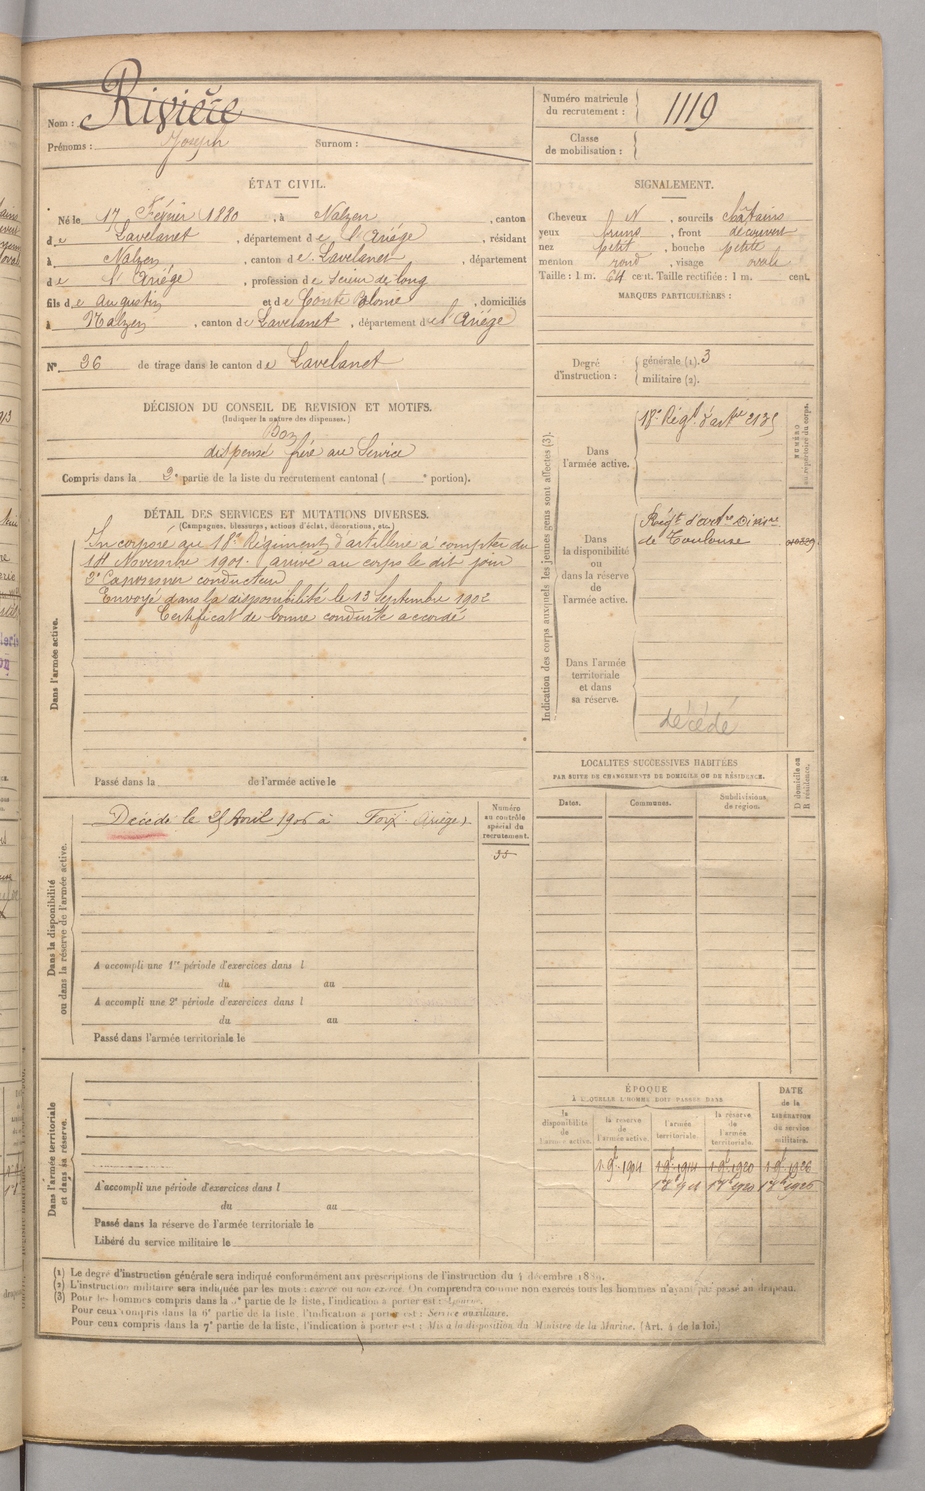 Nom : Rivière
Prénoms : Joseph Surnom :
Numéro matricule
du recrutement : 1119
Classe
de mobilisation :
ÉTAT CIVIL.
Né le 17 Février 1880, à Nalzen, canton
de Lavelanet, département de l'Ariége, résidant
à Nalzen, canton de Lavelanet, département
de l'Ariége, profession de Scieur de long
fils de Augustin et de Conte Blonie, domiciliés
à Nalzen, canton de Lavelanet, département de l'Ariége
N° 36 de tirage dans le canton de Lavelanet
SIGNALEMENT.
Cheveux N, sourcils châtains
yeux bruns, front découvert
nez petit, bouche petite
menton rond, visage ovale
Taille : 1 m. 64 cent. Taille rectifiée : 1 m. cent.
MARQUES PARTICULIÈRES :
Degré
d'instruction :
générale (1). 3
militaire (2).
DÉCISION DU CONSEIL DE REVISION ET MOTIFS.
(Indiquer la nature des dispenses.)
Bon
dispensé frère au Service
Compris dans la 2e partie de la liste du recrutement cantonal ( e portion).
DÉTAIL DES SERVICES ET MUTATIONS DIVERSES.
(Campagnes, blessures, actions d'éclat, décorations, etc.)
Dans l'armée active.
Incorporé au 18e Régiment d'artillerie à compter du
14 Novembre 1901. arrivé au corps le dit jour
2e Canonnier conducteur
Envoyé dans la disponibilité le 13 Septembre 1902
Certificat de bonne conduite accordé
Passé dans la de l'armée active le
Indication des corps auxquels les jeunes gens sont affectés (3).
NUMÉRO
au répertoire du corps.
Dans
l'armée active.
18e Régt d'artie 2135
Dans
la disponibilité
ou
dans la réserve
de
l'armée active.
Régt d'artie Divisre
de Toulouse
Dans l'armée
territoriale
et dans
sa réserve.
décédé
LOCALITÉS SUCCESSIVES HABITÉES
PAR SUITE DE CHANGEMENTS DE DOMICILE OU DE RÉSIDENCE.
Dates.
Communes.
Subdivisions
de région.
D domicile ou
R résidence.
Dans la disponibilité
ou dans la réserve de l'armée active.
Décédé le 25 Avril 1906 à Foix (Ariége).
Numéro
au contrôle
spécial du
recrutement.
55
A accompli une 1re période d'exercices dans l
du au
A accompli une 2e période d'exercices dans l
du au
Passé dans l'armée territoriale le
Dans l'armée territoriale
et dans sa réserve.
A accompli une période d'exercices dans l
du au
Passé dans la réserve de l'armée territoriale le
Libéré du service militaire le
ÉPOQUE
À LAQUELLE L'HOMME DOIT PASSER DANS
la
disponibilité
de
l'armée active.
la réserve
de
l'armée active.
l'armée
territoriale.
la réserve
de
l'armée
territoriale.
DATE
de la
LIBÉRATION
du service
militaire.
1 9e 1904 1 9e 1914 1 9e 1920 1 9e 1926
(1) Le degré d'instruction générale sera indiqué conformément aux prescriptions de l'instruction du 4 décembre 1889.
(2) L'instruction militaire sera indiquée par les mots : exercé ou non exercé. On comprendra comme non exercés tous les hommes n'ayant pas passé au drapeau.
(3) Pour les hommes compris dans la partie de la liste, l'indication à porter est :
Pour ceux compris dans la 6e partie de la liste, l'indication à porter est : Service auxiliaire.
Pour ceux compris dans la 7e partie de la liste, l'indication à porter est : Mis à la disposition du Ministre de la Marine. (Art. 4 de la loi.)